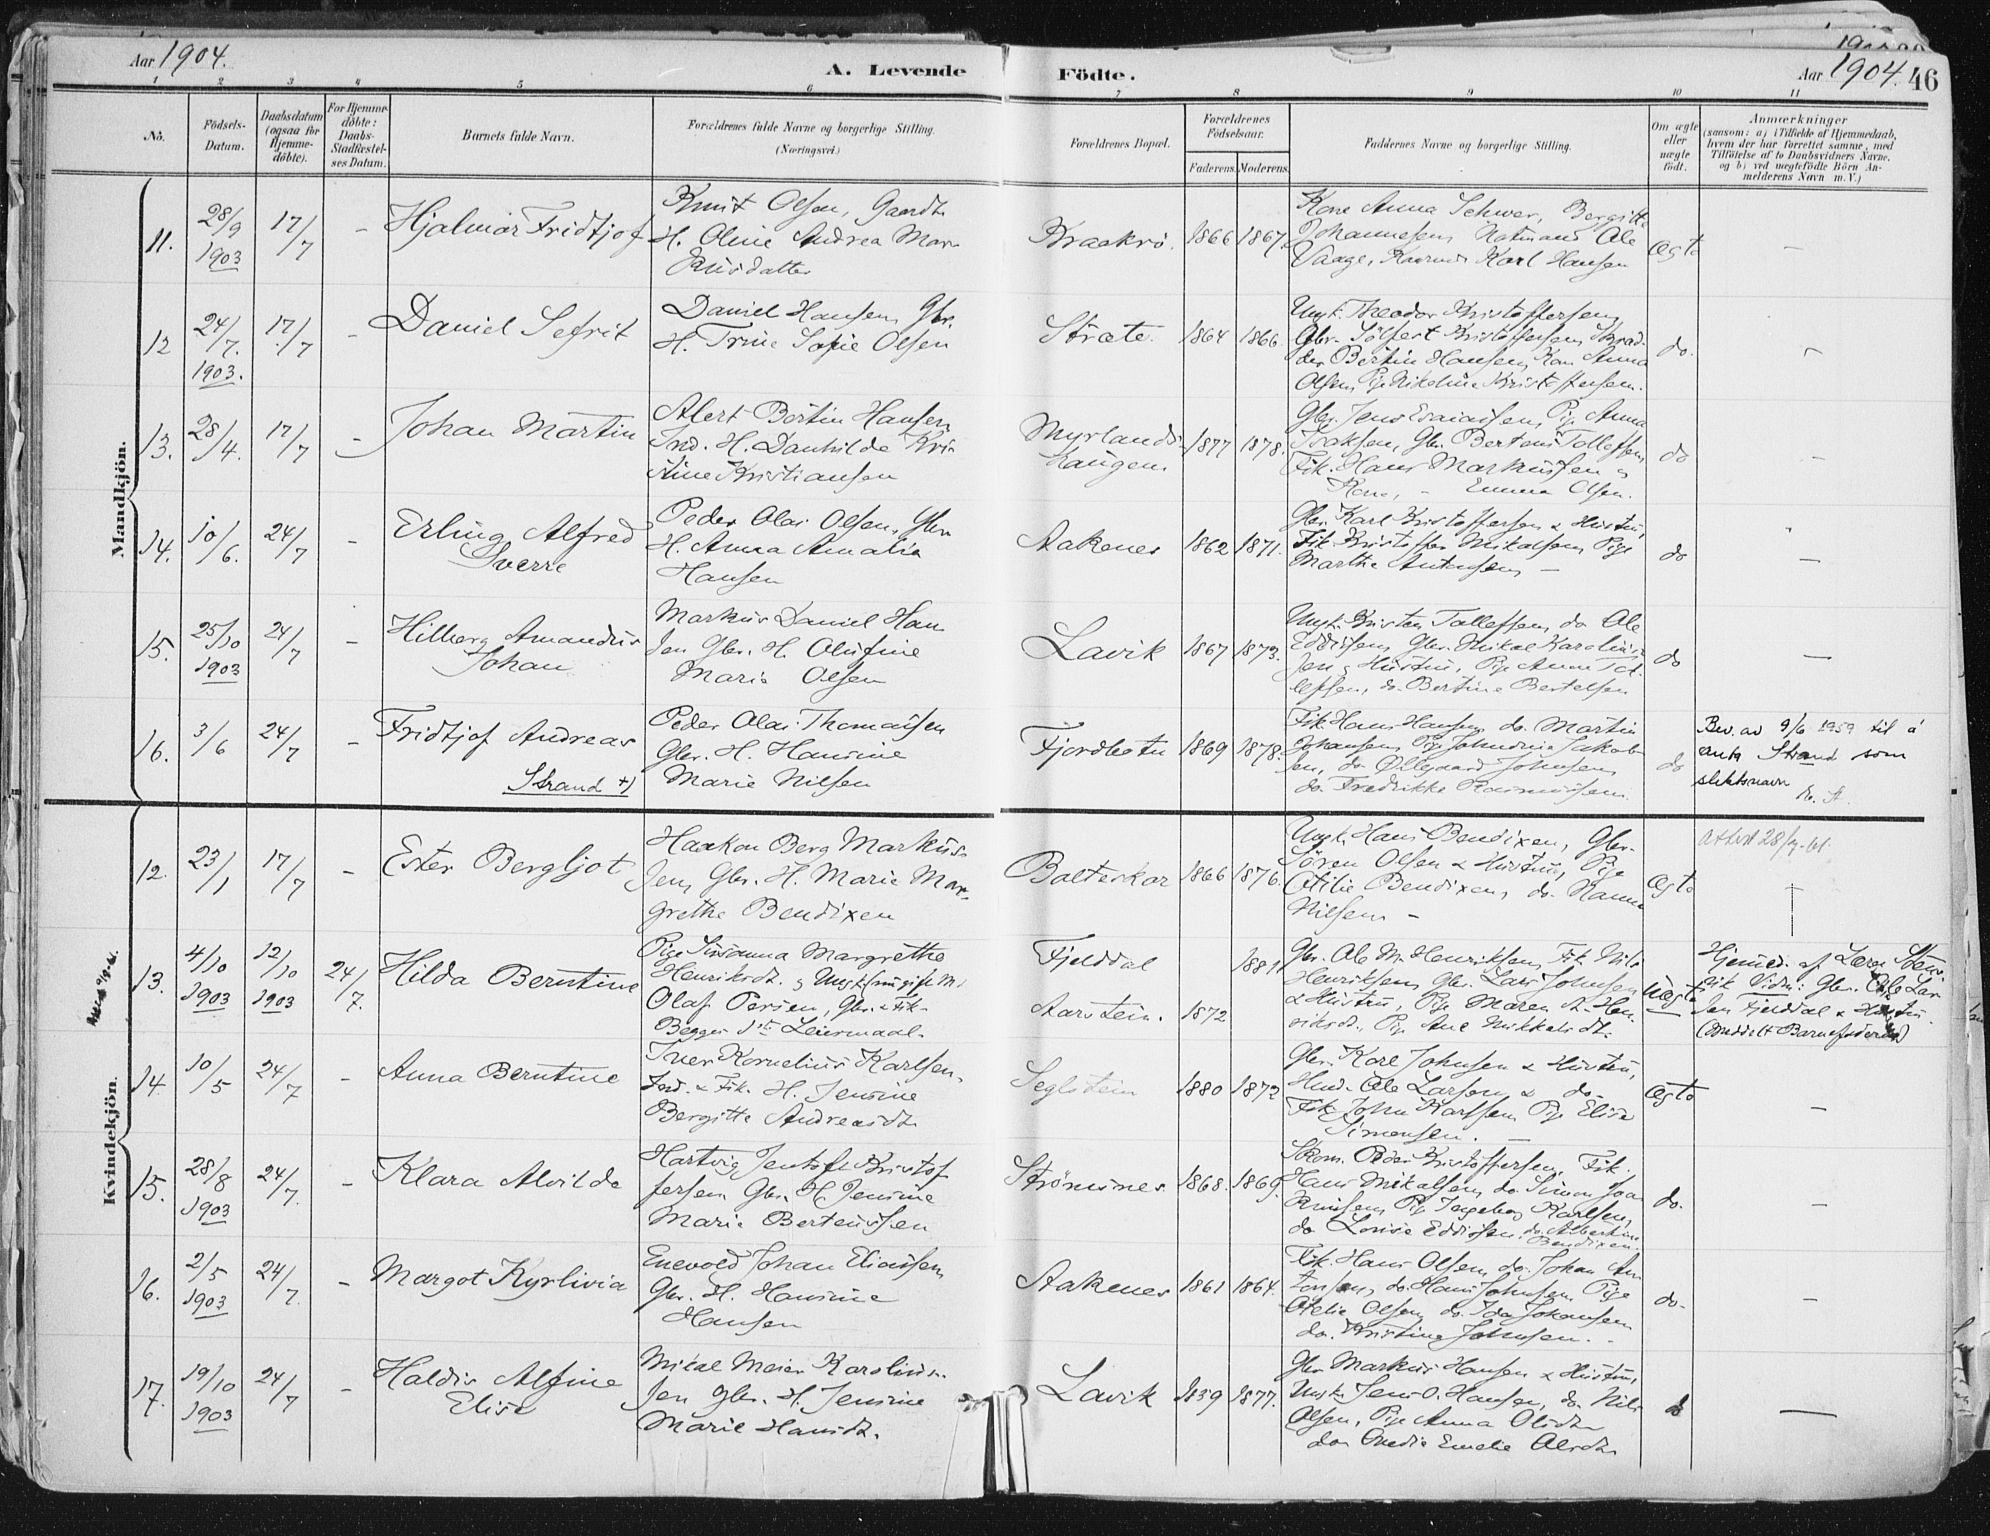 Aar 1904.
A. Levende Födte.
Aar 1904. 46
1 2 3 4 5 6 7 8 9 10 11
No.
Födsels-
Datum.
Daabsdatum
(ogsaa for
Hjemme-
döbte).
For Hjemme-
döbte:
Daabs-
Stadfæstel-
ses Datum.
Barnets fulde Navn.
Forældrenes fulde Navne og borgerlige Stilling.
(Næringsvei.)
Forældrenes Bopæl.
Forældrenes
Födselsaar.
Faderens. Moderens.
Faddernes Navne og borgerlige Stilling.
Om ægte
eller
uægte
født.
Anmærkninger
(saasom: a) i Tilfælde af Hjemmedaab,
hvem der har forrettet samme, med
Tilföielse af to Daabsvidners Navne,
og b) ved uægtefödte Börn An-
melderens Navn m. V.)
Mandkjön.
11. 28/9 1903 17/7 - Hjalmar Fridtjof
Knut Olsen, Gaardb.
H. Oline Andrea Mar-
kusdatter
Kraakrø. 1866 1867.
Kone Anna Schwer, Bergitte
Johannesen, Ole
Vaage, Karl Hansen
Ægte -
12 24/7. 1903. 17/7 - Daniel Sefrit
Daniel Hansen, Gbr.
H. Trine Sofie Olsen
Stræte. 1864 1866.
Ungk. Theodor Kristoffersen,
Gbr. Sölfest Kristoffersen, Skræd-
der Bertin Hansen, Kone Anna
Olsen, Pige Nikoline Kristoffersen.
do.
13. 28/4. 17/7 - Johan Martin
Albert Bertin Hansen
Ind. H. Danhilde Kri-
stine Kristiansen
Myrlands-
haugen 1877 1878.
Gbr. Jens Esaiassen, Pige Anna
Isaksen, Gbr. Berteus Tolleffsen,
Fik. Hans Markussen og
Kone, - Emma Olsen.
do -
14. 10/6. 24/7 - Erling Alfred
Sverre
Peder Olai Olsen, Gbr.
H. Anna Amalia
Hansen
Aakenes 1862 1871.
Gbr. Karl Kristoffersen & Hustru,
Fik. Kristoffer Mikalsen, Pige
Marthe Antonsen -
do -
15. 25/10 1903 24/7 - Hilberg Amandus
Johan
Markus Daniel Han-
sen Gbr. H. Olufine
Marie Olsen
Lavik 1867 1873.
Ungk. Kristen Tollefsen, do Ole
Eddissen, Gbr. Mikal Karolius-
sen & Hustru, Pige Anna Tol-
lefsen, do. Bertine Bertelsen
do -
16. 3/6 24/7 - Fridtjof Andreas
Strand +)
Peder Olai Thomassen
Gbr. H. Hansine
Marie Nilsen
Fjordbotn 1869 1878.
Fik. Hans Hansen, do. Martin
Johansen, Pige Jakob-
sen, do Øllegaard Johnsen,
do. Fredrikke Rasmussen.
do
Bev. av 9/6 1959 til å
anta Strand som
slektsnavn
Kvindekjön.
12. 23/1 17/7 - Ester Bergljot
Haakon Berg Markus-
sen, Gbr. H. Marie Mar-
grethe Bendixen
Balteskar 1866 1876.
Ungk. Hans Bendixen, Gbr.
Sören Olsen & Hustru, Pige
Otilie Bendixen, do. Nanna
Nilsen -
Ægte
13. 4/10 1903 12/10 1903 24/7. Hilda Berntine
Pige Susanna Margrethe
Henriksdt. & Ungk.
Olaf Persen, Gbr. & Fik.
Begges 1ste Leiermaal.
Fjelddal 1881
Aarstein. 1872
Gbr. Ole M. Henriksen, Fik. Nils
Henriksen, Gbr. Lars Johnsen
& Hustru, Pige Maren A. Hen-
riksdt., Pige Ane Mikkelsdt.
Uægte
Hjemmed. af Lærer
Vidn: Gbr. Ole Lar-
sen Fjelddal & Hustru.
14. 10/5 24/7 - Anna Berntine
Iver Kornelius Karlsen,
Ind. & Fik. H. Jensine
Bergitte Andreasdt.
Seglstein 1880 1872
Gbr. Karl Johnsen & Hustru,
Husd. Ole Larsen & do.
Fik. John Karlsen, Pige Elise
Simonsen. -
Ægte -
15. 28/8 1903 24/7. - Klara Alvilde
Hartvig Jentoft Kristof-
fersen Gbr. H. Jensine
Marie Berteussen
Strömsnes 1868. 1869.
Skom. Peder Kristoffersen, Fik.
Hans Mikalsen, do. Simon Joa-
kimsen, Pige Ingeborg Karlsen,
do Lovise Eddissen, do. Albertine
Bendixen.
do. -
16. 2/5 1903 24/7. - Margot Kyrlivia
Enevold Johan Eliassen,
Gbr. H. Hansine
Hansen
Aakenes 1861 1864.
Fik. Hans Olsen, do. Johan An-
tonsen, do. Hans Johnsen, Pige
Otelie Olsen, do. Ida Johansen
do. Kristine Johnsen.
do. -
17. 19/10 1903 24/7 - Haldis Alfine
Elise
Mikal Meier Karolius-
sen Gbr. H. Jensine
Marie Hansdt.
Lavik 1839 1877.
Gbr. Markus Hansen & Hustru,
Ungk. Jens O. Hansen, do. Nils
Olsen, Pige Anna Olsdt.
do. Emelie Olsdt.
do -